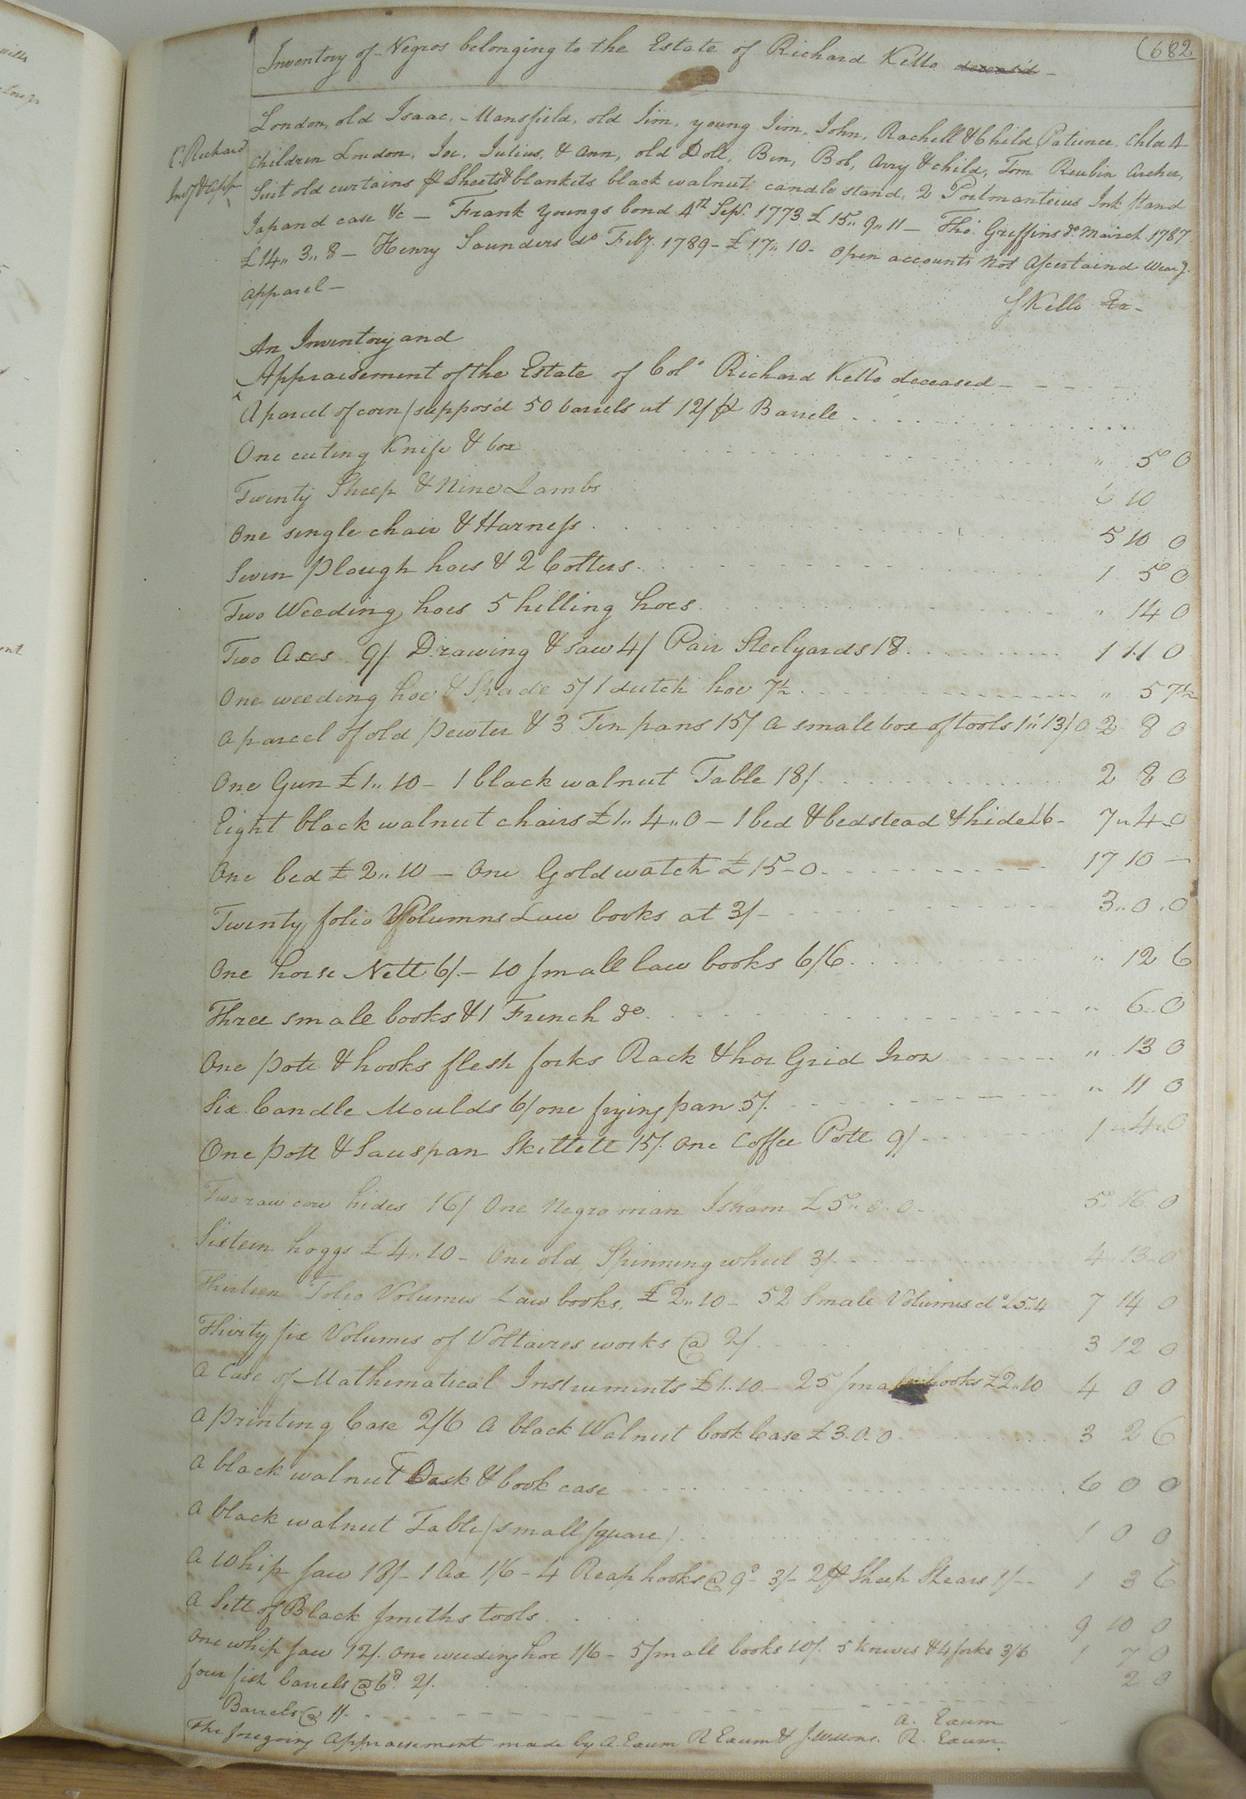 (682
Inventory of Negros belonging to the Estate of Richard Kello deceasd -
London, old Isaac, - Mansfield, old Jim, young Jim, John, Rachell & Child Patience, Chloe 4
Children London, Joe, Julius, & Ann, old Doll, Ben, Bob, Avry & child, Tom Reubin Archer,
Suit old curtains pr Sheets & blankets black walnut candle stand, 2 Portmanteaus Ink Stand
Japand case &c - Frank Youngs bond 4th Sepr. 1773 £ 15.. 9.. 11 - Tho. Griffins do March 1787
£14.. 3.. 8 - Henry Saunders do Feby. 1789 - £ 17.. 10 - open accounts not Ascertaind Wearg.
apparel -
S Kello Ex -
C. Richard
Invy & App
An Inventory and
Appraisement of the Estate of Colo Richard Kello deceased -
A parcel of corn (supposd 50 barrels at 12/ pr Barrele
One cuting Knife & box " 5 0
Twenty Sheep & Nine Lambs 6 10
One single chair & Harness 5 10 0
Seven Plough hoes & 2 Colters 1 5 0
Two Weeding hoes 5 hilling hoes " 14 0
Two Axes 9/ Drawing & saw 4/ Pair Steelyards 18 1 11 0
One weeding hoe & Spade 5/ 1 dutch hoe 7½ " 5 7½
A parcel of old pewter & 3 Tin pans 15/ a small box of tools 1.. 13/0 2 8 0
One Gun £1.. 10 - 1 black walnut Table 18/ 2 8 0
Eight black walnut chairs £1.. 4.. 0 - 1 bed & bedstead & hide £6 - 7 " 4 - 0
One bed £ 2.. 10 - One Gold watch £ 15 - 0 17 10 -
Twenty folio Volumns Law books at 3/ - 3.. 0.. 0
One horse Nett 6/ - 10 small law books 6/6 " 12 6
Three small books & 1 French do " 6.. 0
One pott & hooks flesh forks Rack & hoe Grid Iron " 13 0
Six Candle Moulds 6/ one frying pan 5/ " 11 0
One pott & Sauspan Skillett 15/. One Coffee Pott 9/ 1 " 4 " 0
Two raw cow hides 16/ One Negro man Isham £ 5.. 0.. 0 5 16 0
Sixteen hoggs £ 4.. 10 - One old Spinning wheel 3/ 4 13 0
Thirteen Folio Volumes Law books, £ 2.. 10 - 52 Small Volumes do £5..4 7 14 0
Thirty six Volumes of Voltaires works @ 2/ 3 12 0
A Case of Mathematical Instruments £1.. 10 - 25 small books £2.. 10 4 0 0
A printing Case 2/6 A black Walnut book Case £ 3. 0. 0 3 2 6
A black walnut Desk & book case 6 0 0
A black walnut Table (small square) 1 0 0
A Whip Saw 18/ - 1 Ax 1/6 - 4 Reap hooks @ 9d - 3/ - 2 pr Sheep Shears 1/ - 1 3 6
A Sett of Black smiths tools 9 10 0
One whip saw 12/. One weeding hoe 1/6 - 5 small books 10/. 5 knives & 4 forks 3/6 1 7 0
four fish barrels @ 6d. 2/. 2 0
Barrels @ 1/.
The foregoing Appraisement made by A. Exum R Exum &
A. Exum
R. Exum